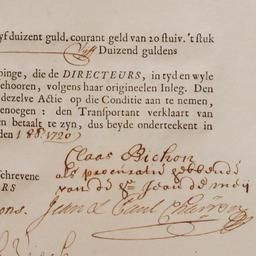 yf duizent guld. courant geld van 20 stuiv. 't stuk
vyff Duizend guldens
pinge, die de DIRECTEURS, in tyd en wyle
gehooren, volgens haar origineelen Inleg. Den
dezelve Actie op die Conditie aan te nemen,
enoegen: den Transportant verklaart van
en betaalt te zyn, dus beyde onderteekent in
den 1720
Claas Bichon
als procuratie hebbende
van de Hr Jean de meij
schrevene
RS
ons. Jean & Paul Charron